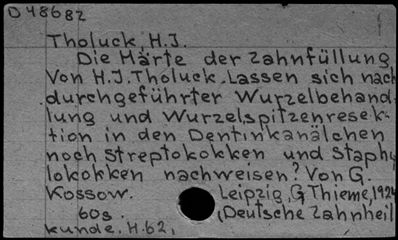 D 48682
Tholuck, H.J.
Die Härte der Zahnfüllung
Von H.J. Tholuck. Lassen sich nach
durchgeführter Wurzelbehand-
lung und Wurzelspitzenresek-
tion in den Dentinkanälchen
noch Streptokokken und Staphy
lokokken nachweisen? Von G.
Kossow. Leipzig, G. Thieme, 1924
60s. (Deutsche Zahnheil
kunde. H.62,